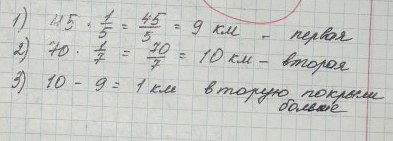 1) 45 · 1/5 = 45/5 = 9 км - первая
2) 70 · 1/7 = 70/7 = 10 км - вторая
3) 10 - 9 = 1 км вторую покрыли
больше